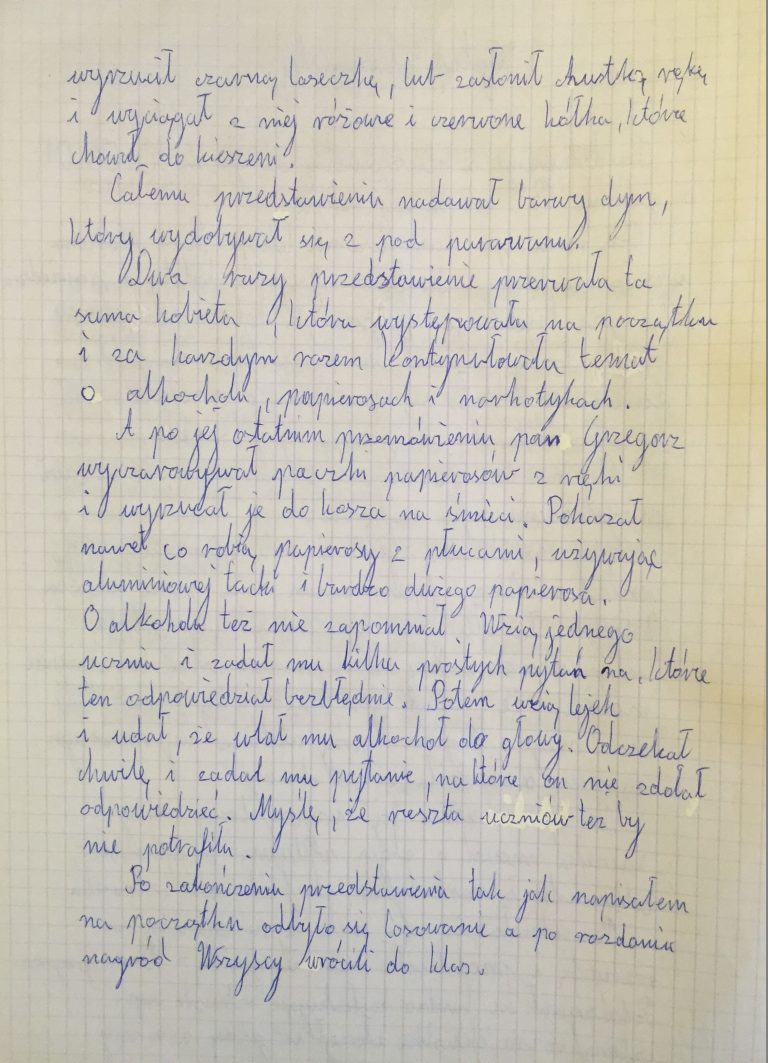 wyrzucił czarną laseczkę, lub zasłonił chustką rękę
i wyciągał z niej różowe i czerwone kółka, które
chował do kieszeni.
Całemu przedstawieniu nadawał barwy dym,
który wydobywał się z pod parawanu.
Dwa razy przedstawienie przerwała ta
sama kobieta, która występowała na początku
i za każdym razem kontynułowała temat
o alkocholu, papierosach i narkotykach.
A po jej ostatnim przemówieniu pan Grzegorz
wyczarowywał paczki papierosów z ręki
i wyrzucał je do kosza na śmieci. Pokazał
nawet co robią papierosy z płucami, używając
aluminiowej tacki i bardzo dużego papierosa.
O alkoholu też nie zapomniał. Wzią jednego
ucznia i zadał mu kilka prostych pytań na, które
ten odpowiedział bezbłędnie. Potem wzią lejek
i udał, że wlał mu alkochol do głowy. Odczekał
chwilę i zadał mu pytanie, na które on nie zdołał
odpowiedzieć. Myślę, że reszta uczniów też by
nie potrafiła.
Po zakończeniu przedstawienia tak jak napisałem
na początku odbyło się losowanie a po rozdaniu
nagród Wszyscy wrócili do klas.